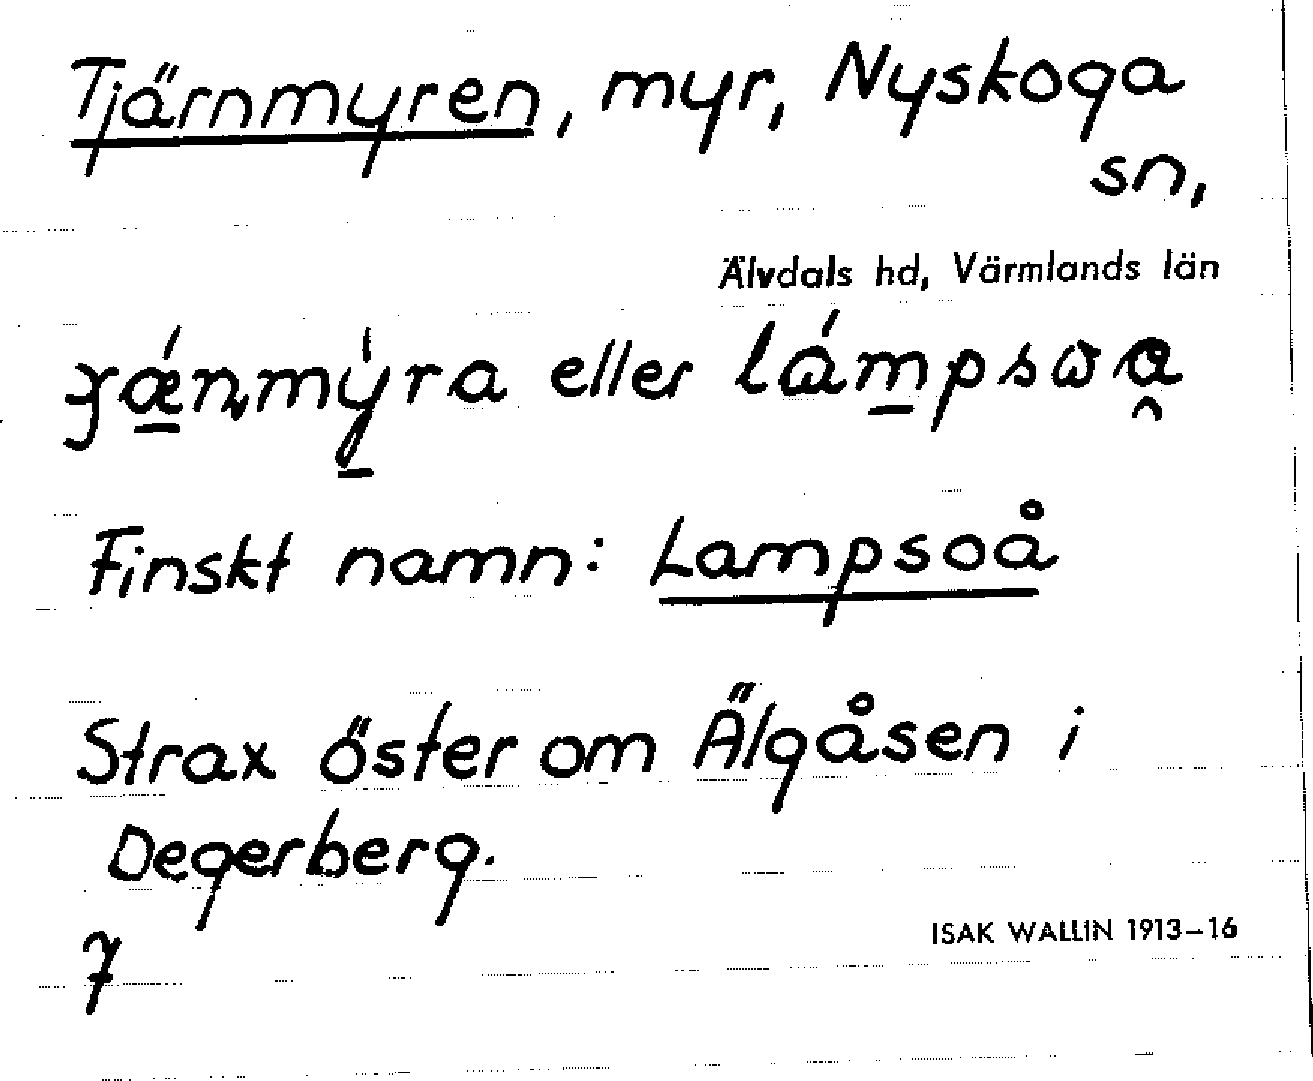 Tjärnmyren, myr, Nyskoga
sn,
Älvdals hd, Värmlands län
eller
Finskt namn: Lampsoå
Strax öster om Älgåsen i
Degerberg.
7
ISAK WALLIN 1913–16